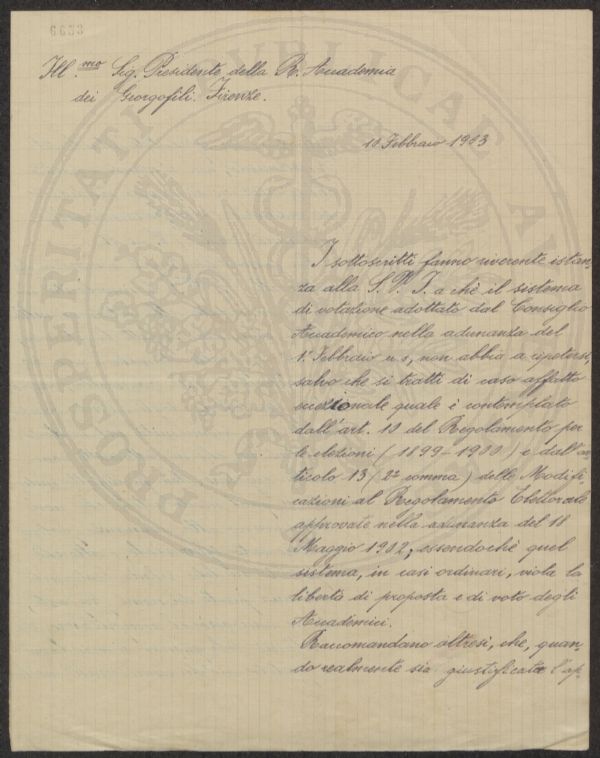 6633
Ill.mo Sig. Presidente della R. Accademia
dei Georgofili. Firenze.
10 Febbraio 1903
I sottoscritti fanno riverente istan-
za alla S. V. I. a chè il sistema
di votazione adottato dal Consiglio
Accademico nella adunanza del
1.° Febbraio u. s., non abbia a ripetersi,
salvo che si tratti di caso affatto
eccezionale quale è contemplato
dall'art. 10 del Regolamento per
le elezioni (1899-1900) e dall'ar-
ticolo 13 (2° comma) delle Modifi-
cazioni al Regolamento Elettorale
approvate nella adunanza del 18
Maggio 1902, essendochè quel
sistema, in casi ordinari, viola la
libertà di proposta e di voto degli
Accademici.
Raccomandano altresì, che, quan-
do realmente sia giustificata l'ap-
PROSPERITATI PUBLICAE AU